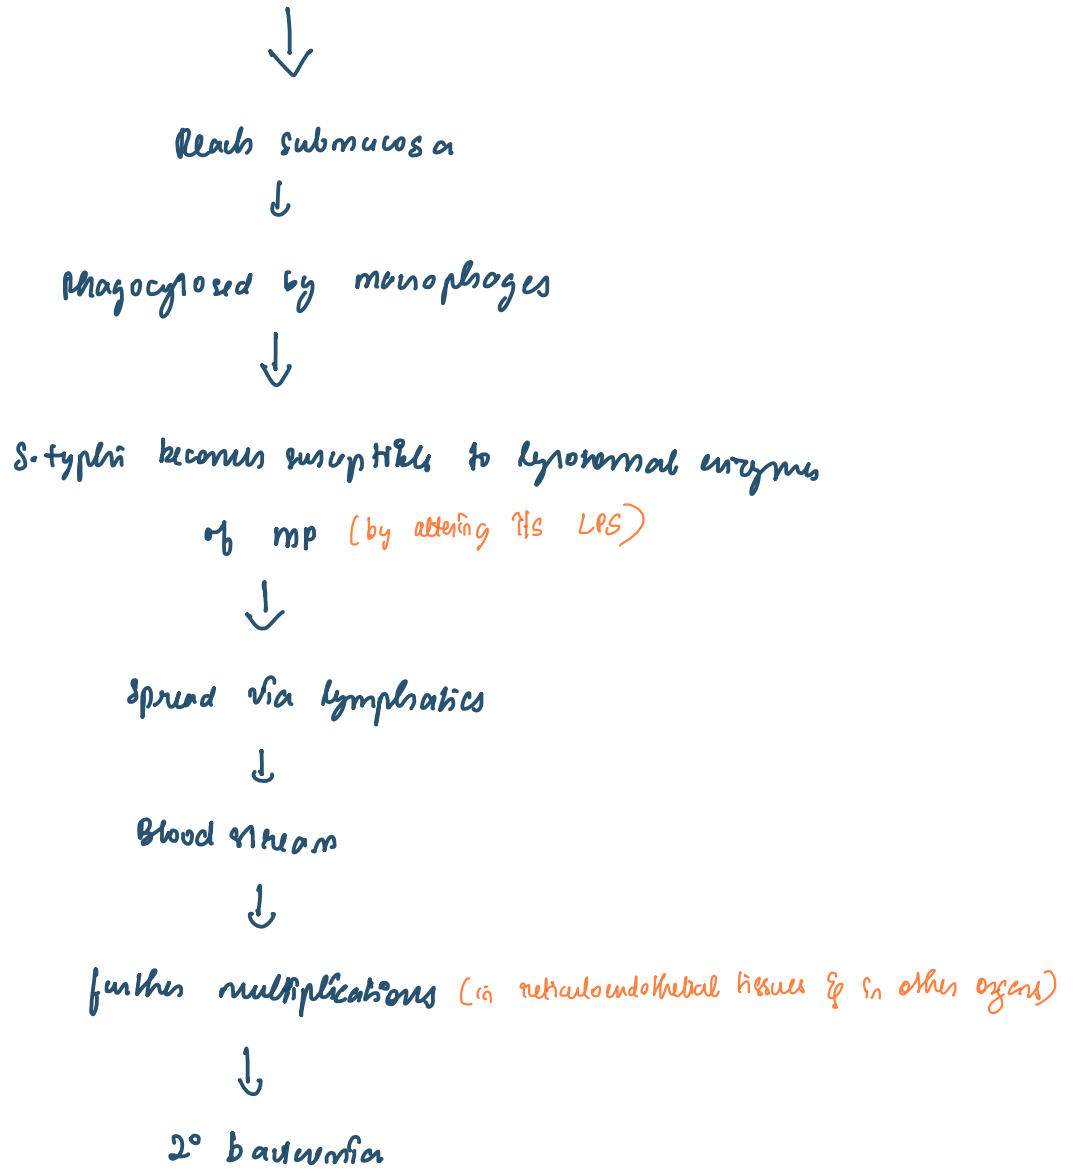 Reach submucosa
Phagocytosed by macrophages
S.typhi becomes susceptible to lysosomal enzymes
of mp (by altering its LPS)
Spread via lymphatics
Blood stream
further multiplications (in reticuloendothelial tissues & in other organs)
2° bacteremia